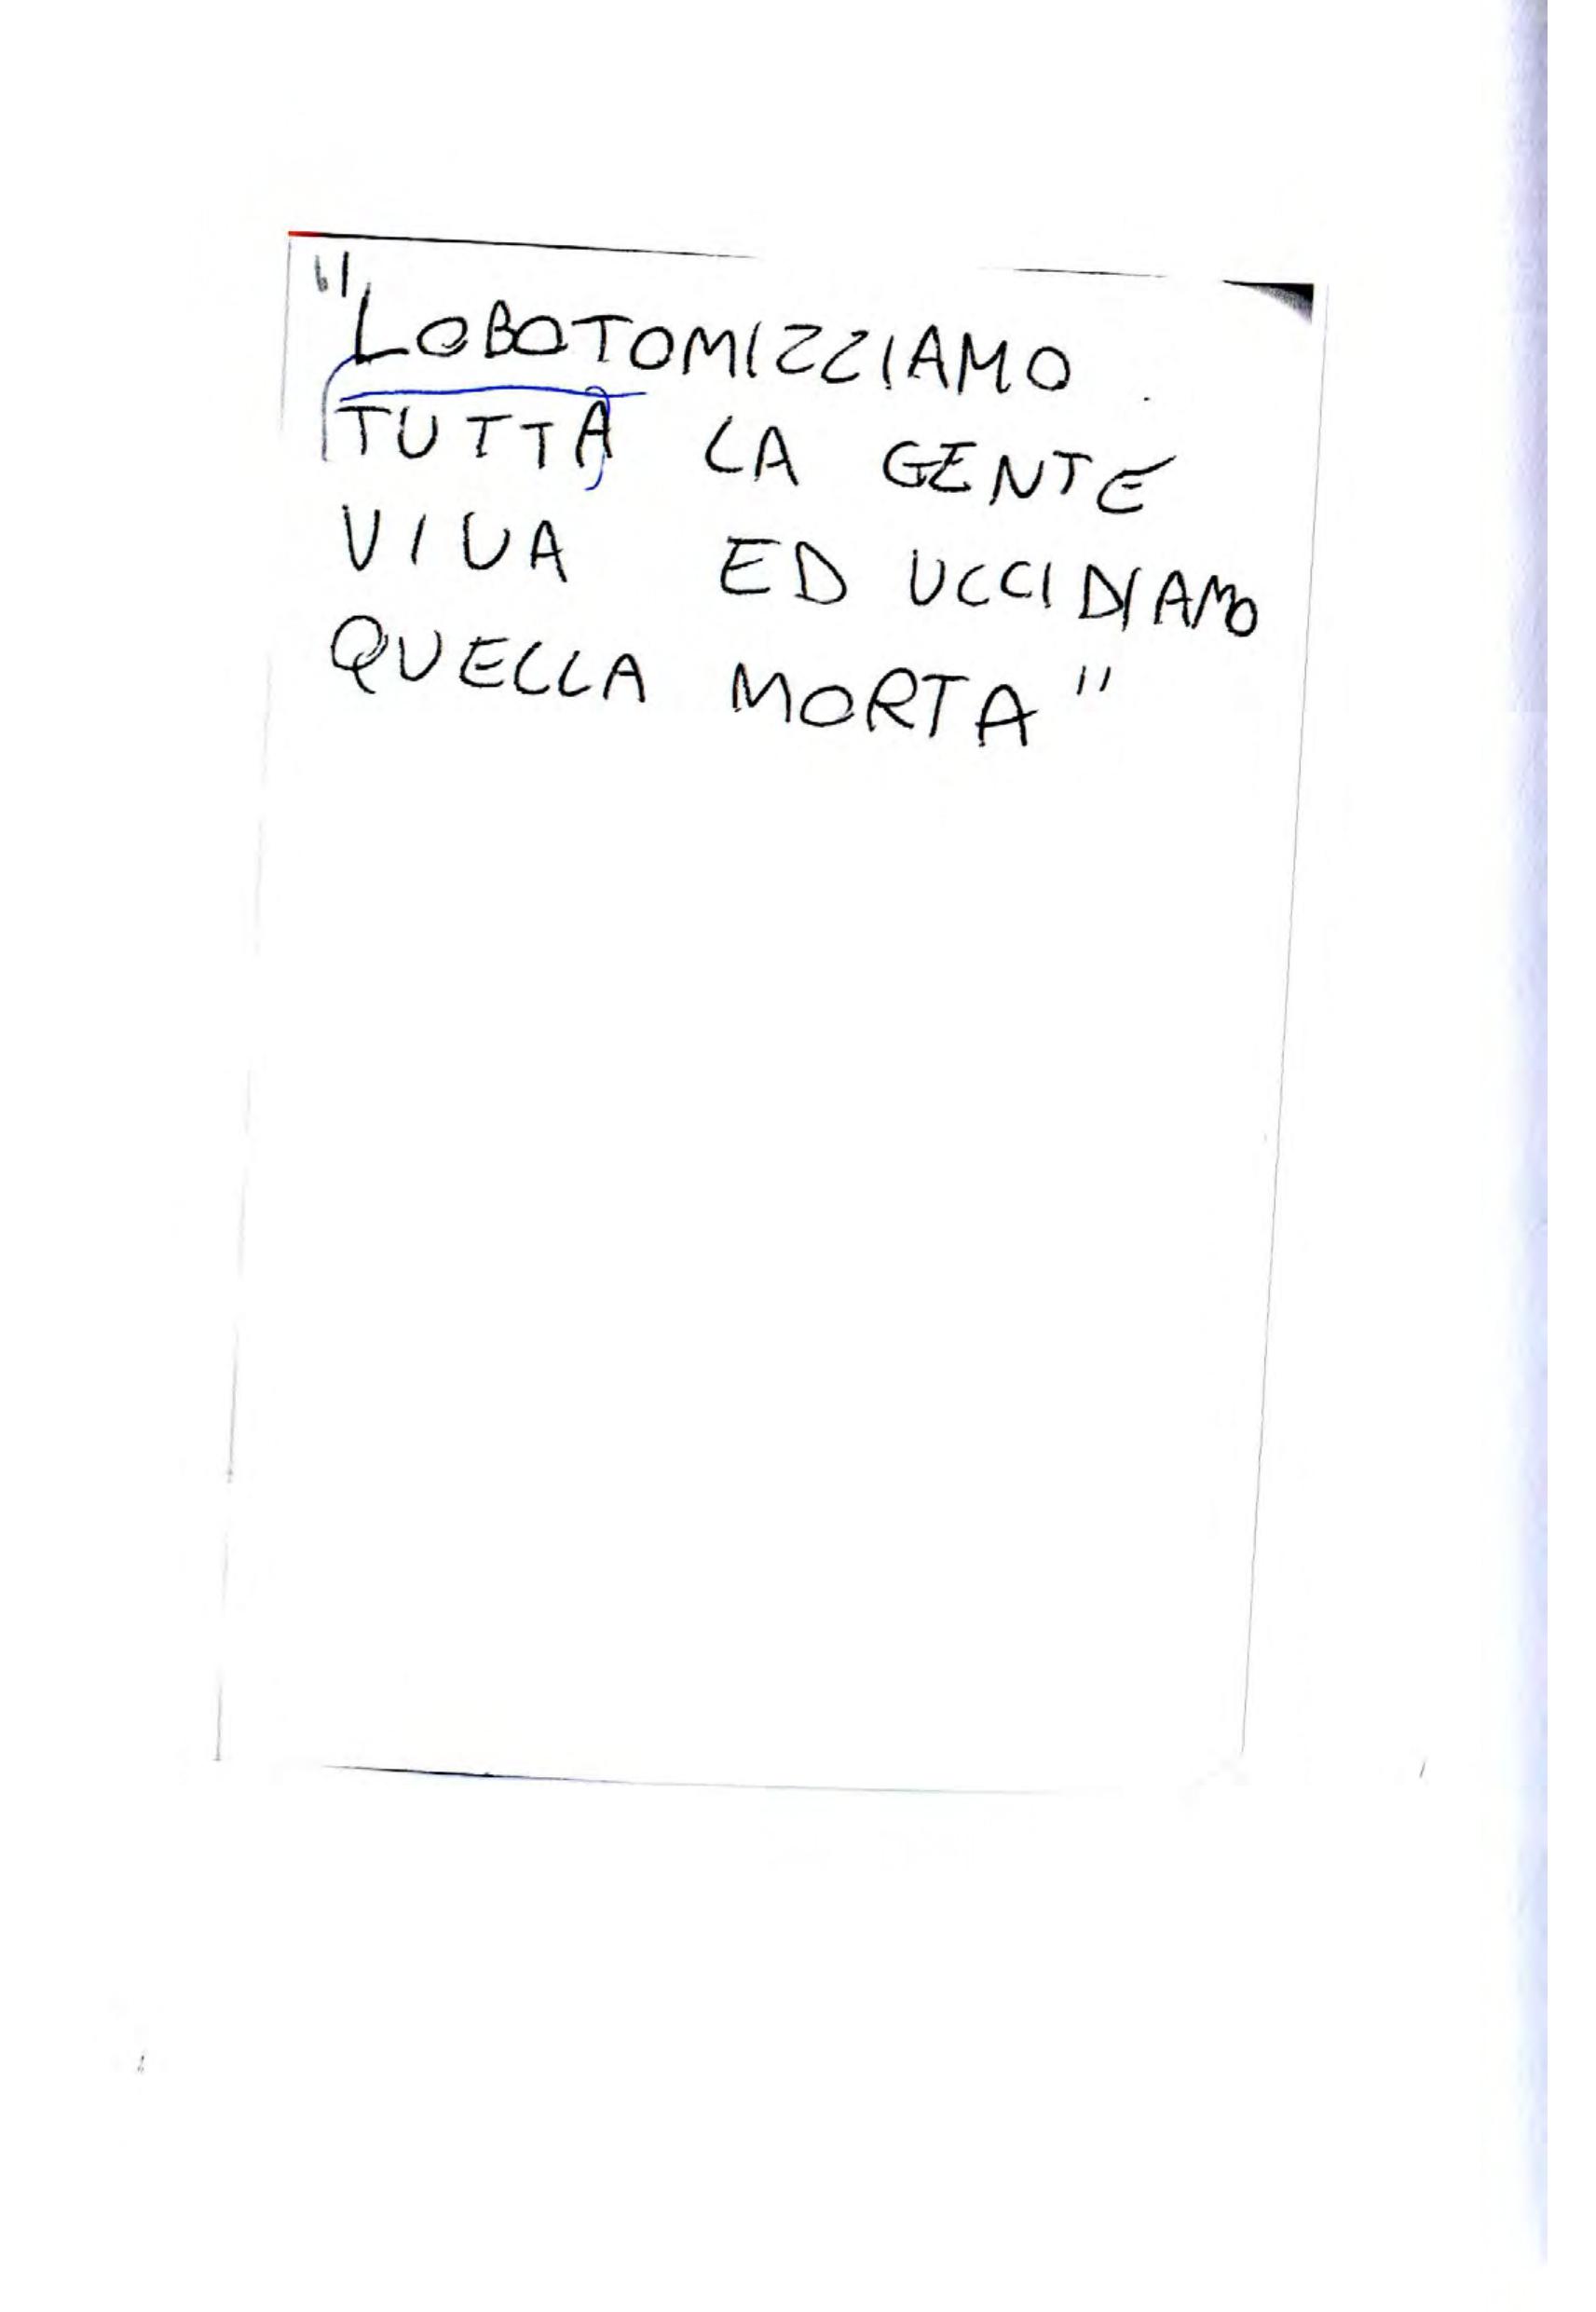 "LOBOTOMIZZIAMO
TUTTA LA GENTE
VIVA ED UCCIDIAMO
QUELLA MORTA"